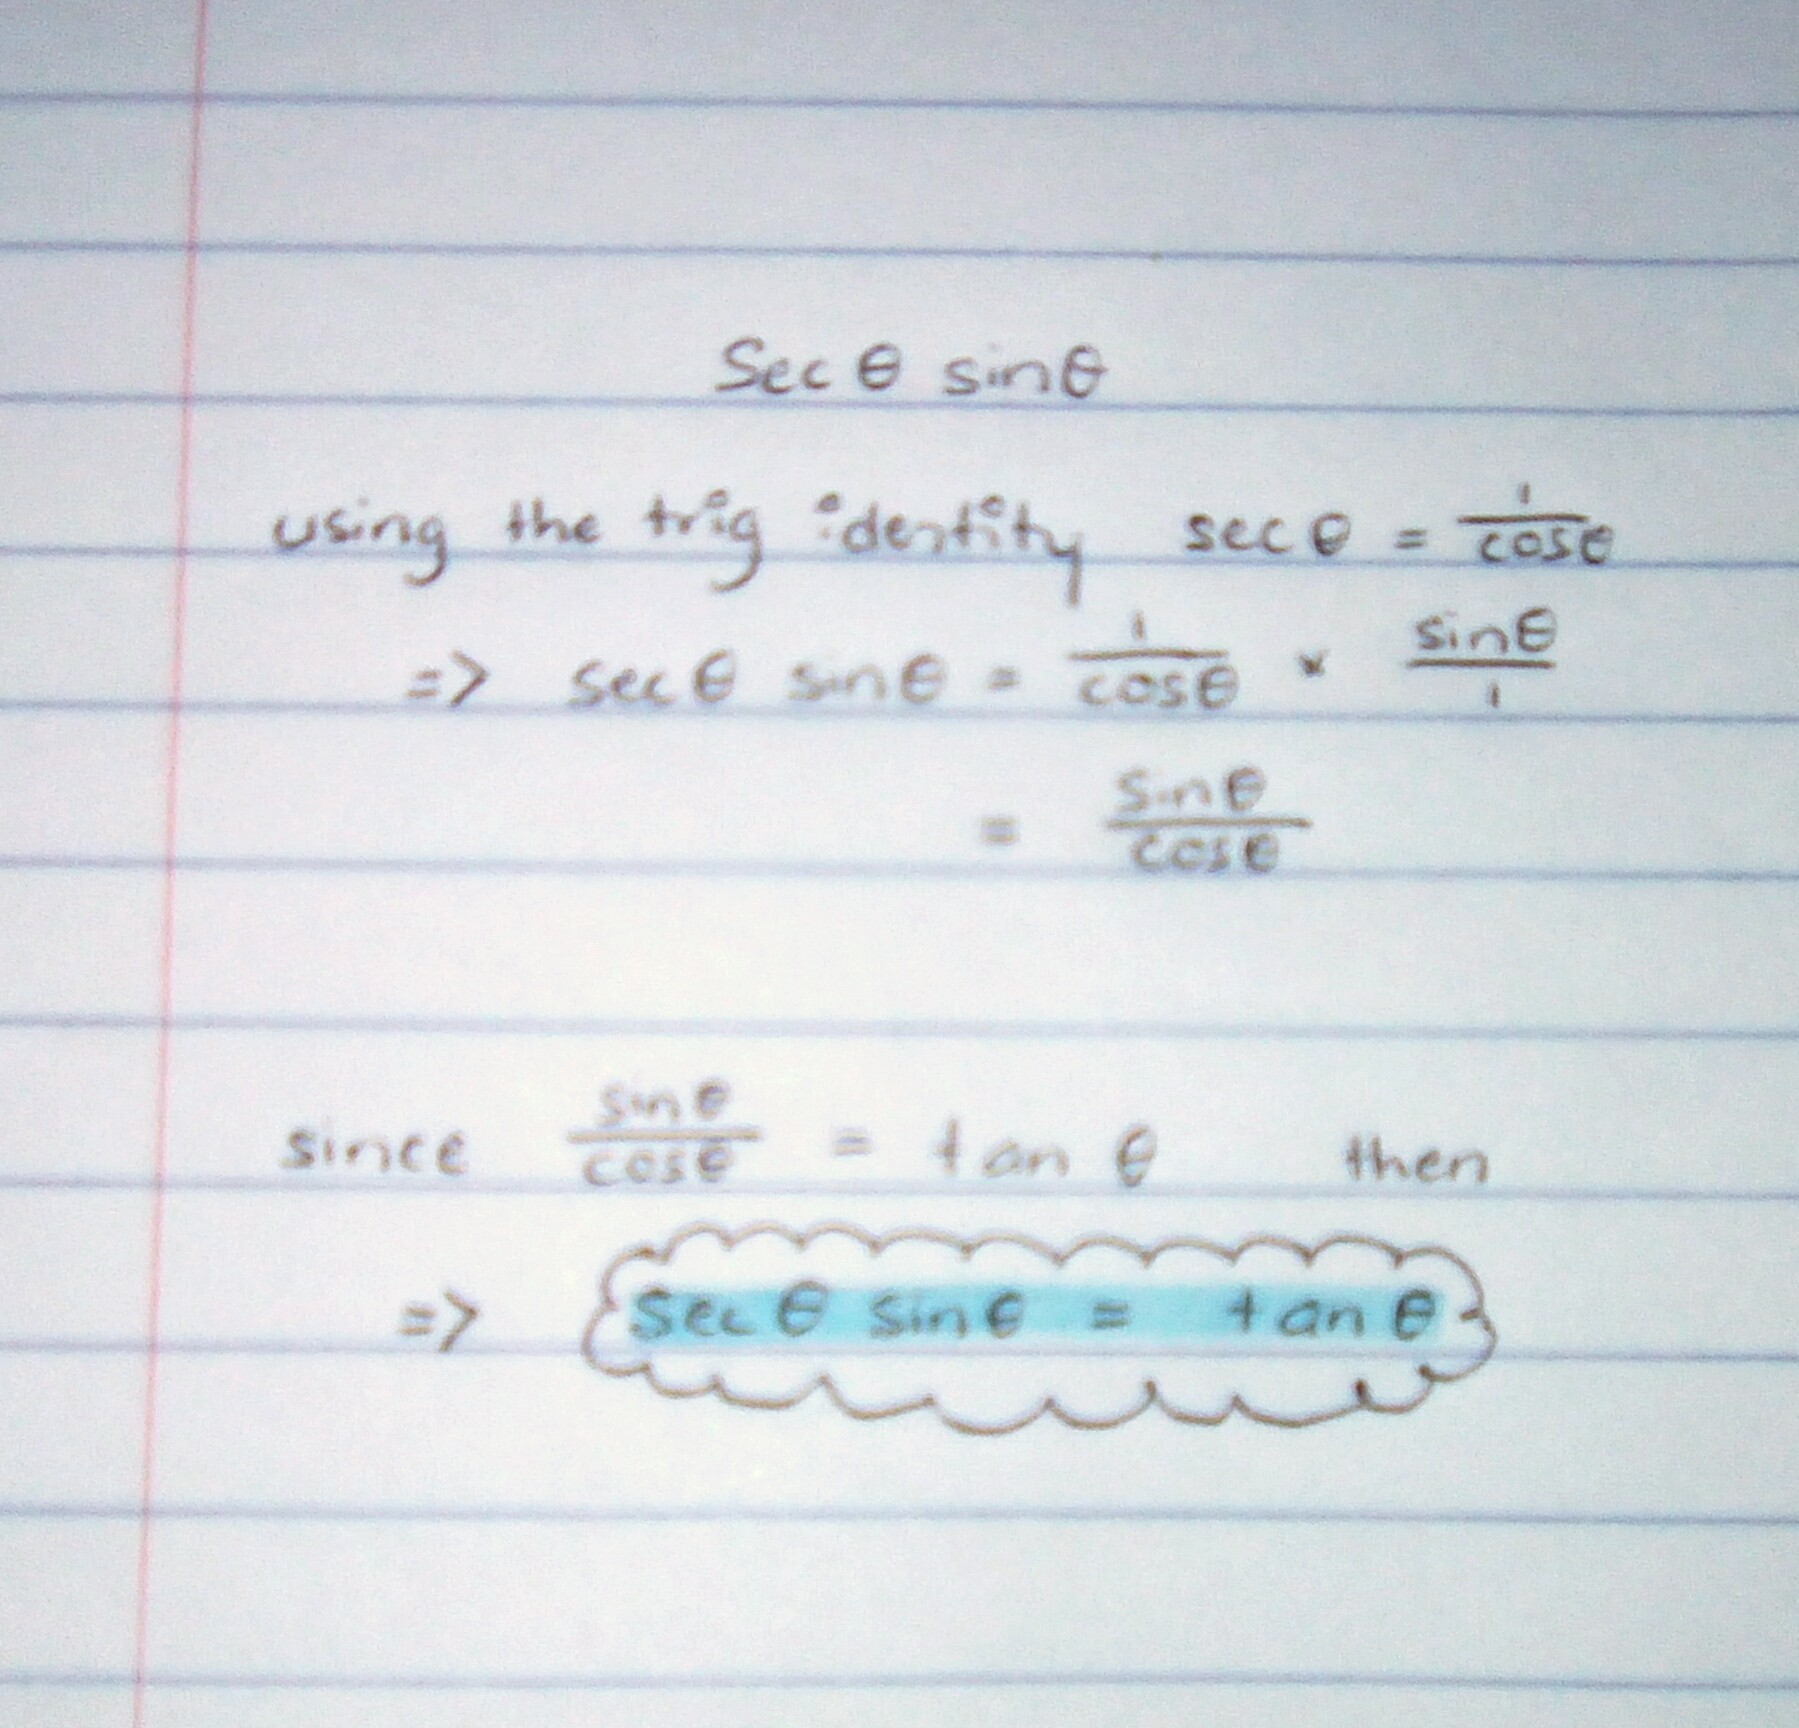 Sec θ sinθ
using the trig identity sec θ = 1/cosθ
=> sec θ sin θ = 1/cosθ × sinθ/1
= sinθ/cosθ
since sinθ/cosθ = tan θ then
=> sec θ sin θ = tan θ